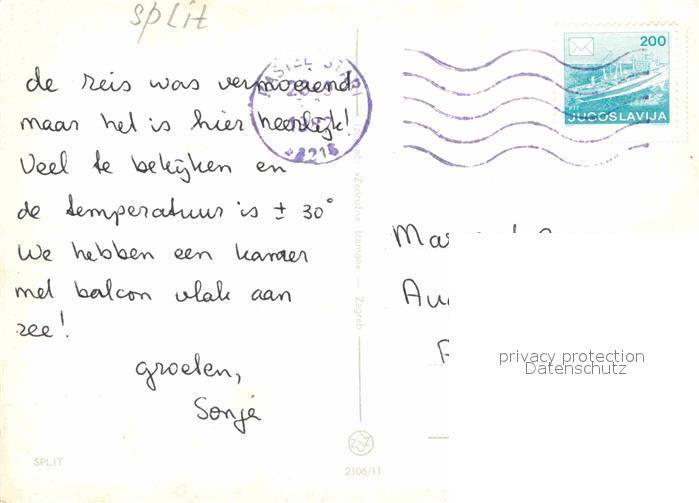 split
200
JUGOSLAVIJA
de reis was vermoeiend
maar het is hier heerlijk!
Veel te bekijken en
de temperatuur is ± 30°
We hebben een kamer
met balcon vlak aan
zee!
groeten,
Sonja
»Zadružna štampa« — Zagreb
privacy protection
Datenschutz
SPLIT
2106/11